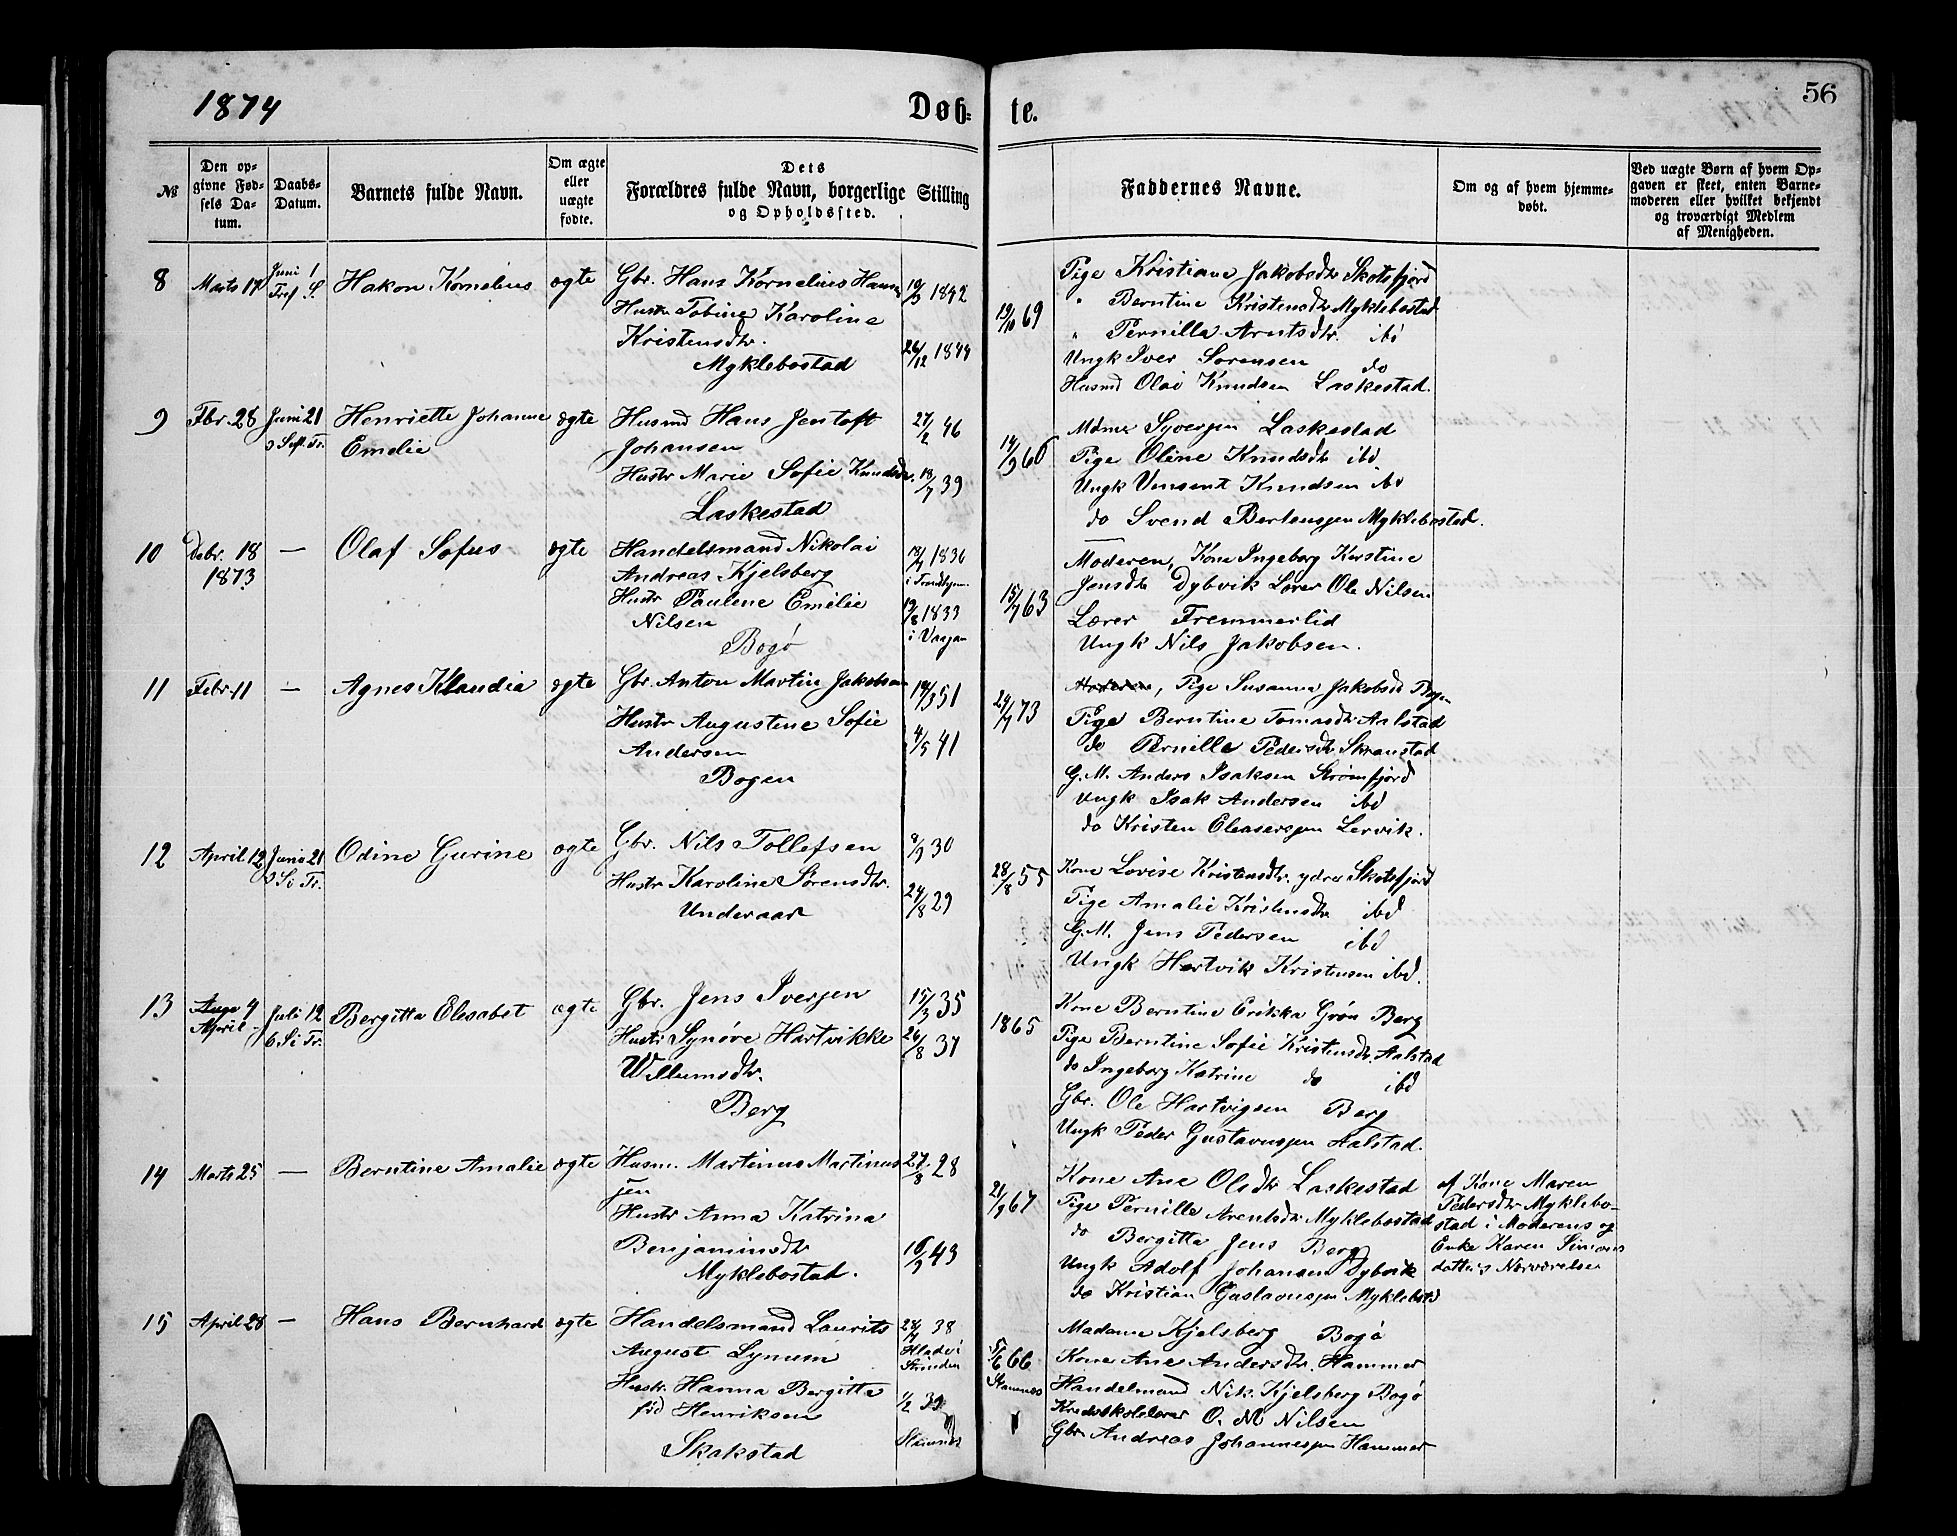 1874
Døb-
te.
56
№
Den op-
givne Fød-
sels Da-
tum.
Daabs-
Datum.
Barnets fulde Navn.
Om ægte
eller
uægte
fødte.
Dets
Forældres fulde Navn, borgerlige Stilling
og Opholdssted.
Faddernes Navne.
Om og af hvem hjemme-
døbt.
Ved uægte Børn af hvem Op-
gaven er skeet, enten Barne-
moderen eller hvilket bekjendt
og troværdigt Medlem
af Menigheden.
8 Marts 17 Juni 1 Tref S. Hakon Kornelius ægte
Gbr. Hans Kornelius Hans 1842
Hustr Tobine Karoline
Kristensdtr. 26/12 1844
Myklebostad
19/10 69
Pige Kristiane Jakobsdtr Skotsfjord
" Berntine Kristensdtr Myklebostad
" Pernilla Arntsdtr. ibd
Ungk Iver Sørensen do
Husmd Olai Knudsen Laskestad.
9 Fbr. 28 Juni 21 3 S. eft. Tr. Henriette Johanne
Emelie ægte
Husmd Hans Jentoft 27/2 46
Johansen
Hustr Marie Sofie Knudsdtr. 13/7 39
Laskestad
14/9 66
Mdme Syversen Laskestad
Pige Oline Knudsdtr ibd.
Ungk Vinsent Knudsen ibd
do Svend Bertensen Myklebostad.
10 Debr. 18
1873 — Olaf Sofus ægte
Handelsmand Nikolai 1836
Andreas Kjelsberg i Trondhjem
Hustr Paulene Emilie 1833
Nilsen i Vaagan
Bogø
15/7 63
Moderen, Kone Ingeborg Kerstine
Jensdtr Dybvik Lærer Ole Nilsen
Lærer Fremmerlid
Ungk Nils Jakobsen.
11 Febr. 11 — Agnes Klaudia ægte
Gbr. Anton Martin Jakobsen 51
Hustr Augustine Sofie
Andersen 4/5 41
Bogen
24/7 73
Moderen, Pige Susanna Jakobsdtr Bogen
Pige Berntine Tomasdtr Aalstad
do Pernille Pedersdtr Skranstad
G.M. Anders Isaksen Strømfjord
Ungk Isak Andersen ibd
do Kristen Eleasersen Lervik.
12 April 12 Juni 21 3 S. e. Tr. Odine Gurine ægte
Gbr. Nils Tollefsen 8/9 30
Hustr Karoline Sørensdtr. 24/8 29
Underaar
28/8 55
Kone Lovise Kristensdtr. ydre Skotsfjord
Pige Amalie Kristensdtr ibd
G.M. Jens Pedersen ibd
Ungk Hartvik Kristensen ibd.
13 Aug 4
April - Juli 12 6. S. e. Tr. Bergitta Elesabet ægte
Gbr. Jens Iversen 15/3 35
Hustr Synøve Hartvikke 26/8 37
Willumsdtr.
Berg
1865
Kone Berntine Erikka Grøn Berg
Pige Berntine Sofie Kristensdtr. Aalstad
do Ingeborg Katrine do ibd
Gbr. Ole Hartvigsen Berg
Ungk Peder Gustavussen Aalstad.
14 Marts 25 — Berntine Amalie ægte
Husm. Martinus Martinus- 27/8 28
sen
Hustr Anna Katrina
Benjaminsdtr 16/9 43
Myklebostad.
21/9 67
Kone Ane Olsdtr Laskestad
Pige Pernille Arentsdtr Myklebostad
do Bergitta Jens Berg
Ungk Adolf Johansen Dybvik
do Kristian Gustavussen Myklebstd
af Kone Maren
Pedersdtr Myklebo-
stad i Moderens og
Enke Karen Simons
datters Nærværelse
15 April 28 — Hans Bernhard ægte
Handelsmand Laurits 38
August Lynum Hlade i
Strinden
Hustr. Hanna Bergitte 1/2 39
fød Henriksen
Skakstad Stamnes
5/6 66
Stamnes
Madame Kjelsberg Bogø
Kone Ane Andersdtr. Hammer
Handelmand Nik. Kjelsberg Bogø
Kredsskolelærer O. M Nilsen
Gbr Andreas Johannessen Hammer